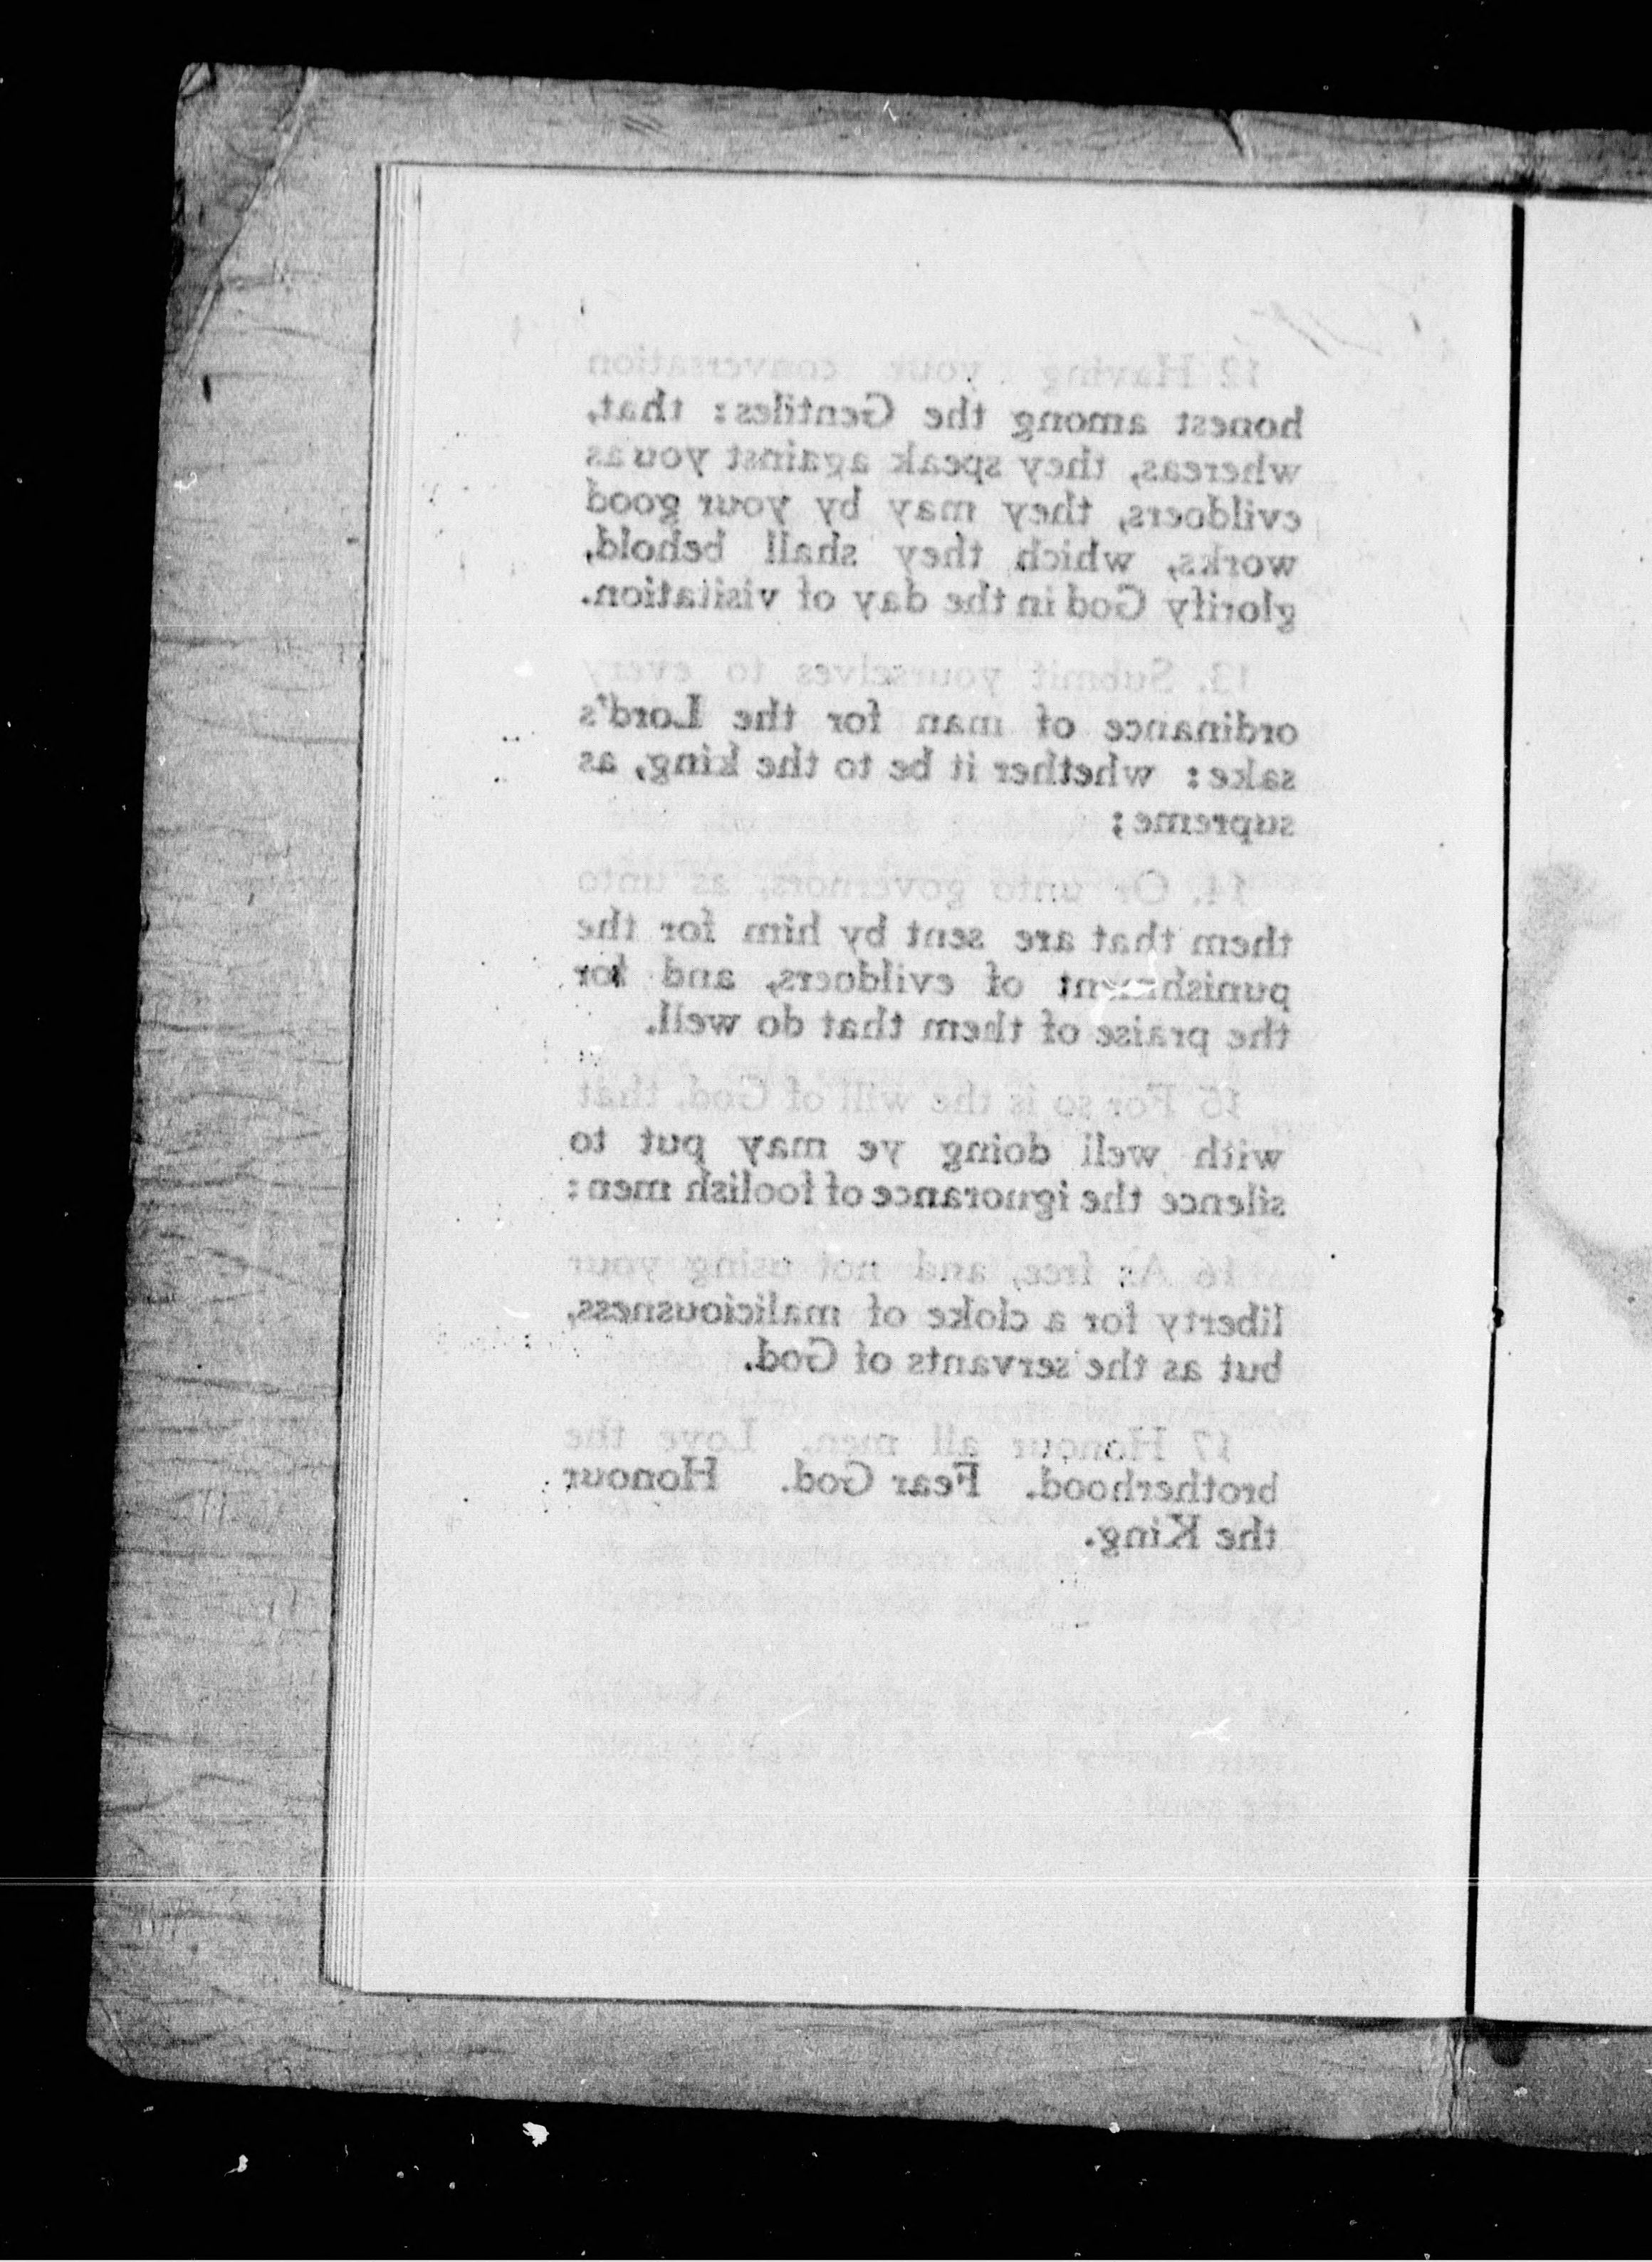 12 Having your conversation
honest among the Gentiles: that,
whereas, they speak against you as
evildoers, they may by your good
works, which they shall behold,
glorify God in the day of visitation.
13. Submit yourselves to every
ordinance of man for the Lord's
sake: whether it be to the king, as
supreme;
14. Or unto governors, as unto
them that are sent by him for the
punishment of evildoers, and for
the praise of them that do well.
16 For so is the will of God, that
with well doing ye may put to
silence the ignorance of foolish men:
16 As free, and not using your
liberty for a cloke of maliciousness,
but as the servants of God.
17 Honour all men. Love the
brotherhood. Fear God. Honour
the King.